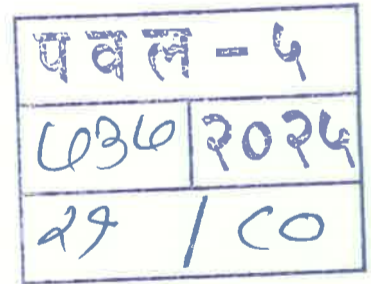 पवल - ५
७३७ २०२५
२९ / ८०